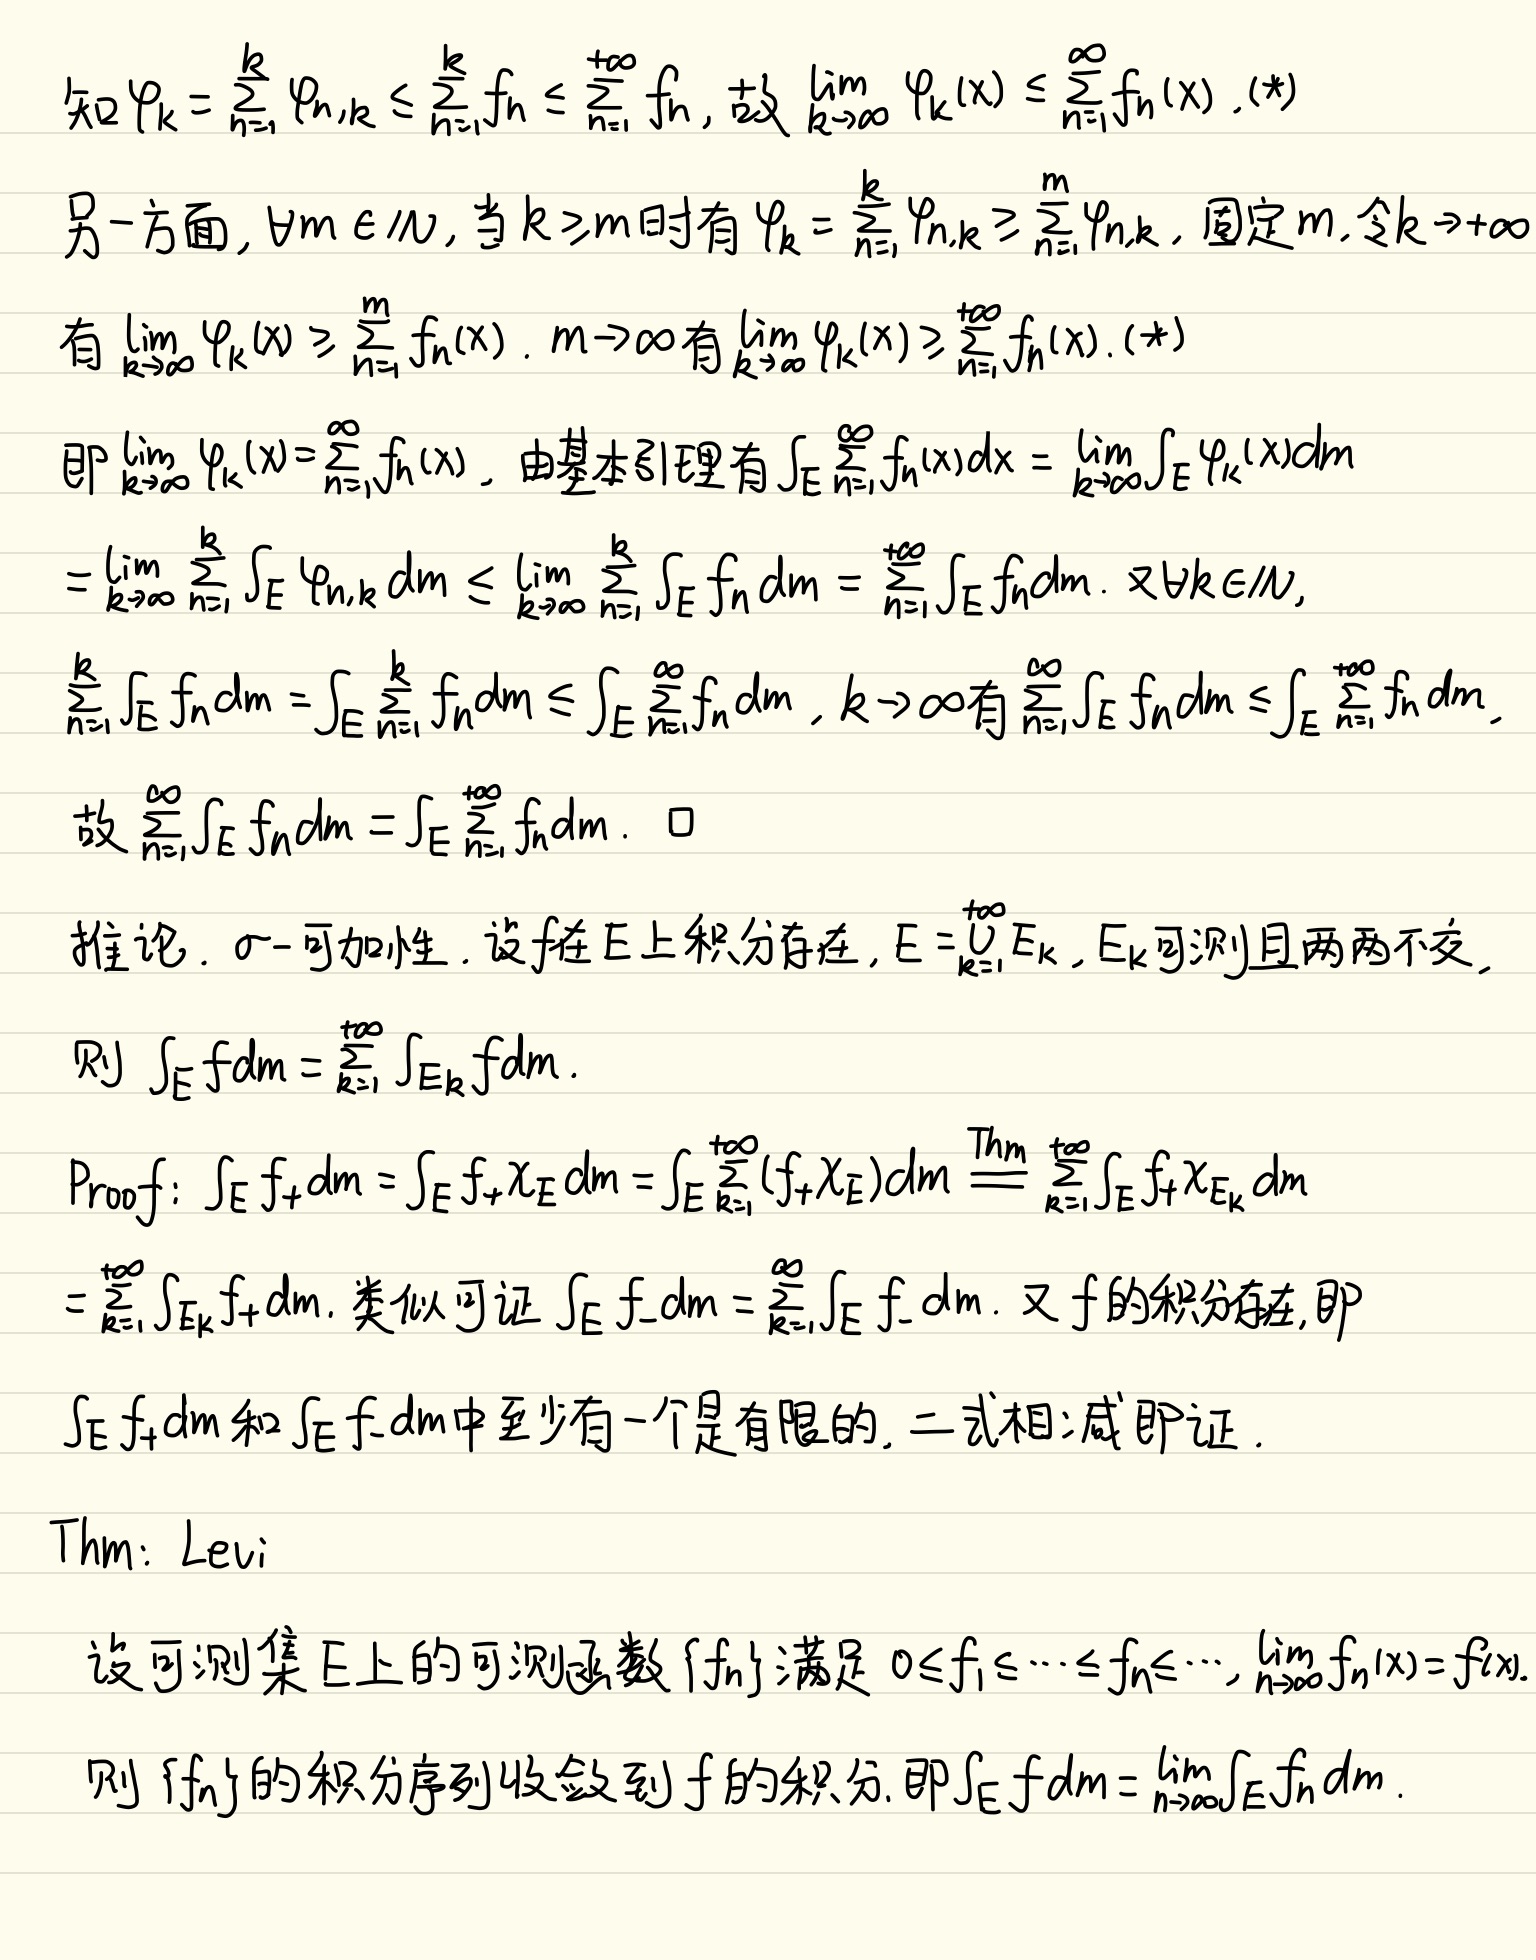 知 φ_k = ∑_{n=1}^{k} φ_{n,k} ≤ ∑_{n=1}^{k} f_n ≤ ∑_{n=1}^{+∞} f_n, 故 lim_{k→∞} φ_k(x) ≤ ∑_{n=1}^{∞} f_n(x). (*)
另一方面, ∀m∈ℕ, 当 k≥m 时有 φ_k = ∑_{n=1}^{k} φ_{n,k} ≥ ∑_{n=1}^{m} φ_{n,k}, 固定m, 令k→+∞
有 lim_{k→∞} φ_k(x) ≥ ∑_{n=1}^{m} f_n(x). m→∞有 lim_{k→∞} φ_k(x) ≥ ∑_{n=1}^{+∞} f_n(x). (*)
即 lim_{k→∞} φ_k(x) = ∑_{n=1}^{∞} f_n(x), 由基本引理有 ∫_E ∑_{n=1}^{∞} f_n(x)dx = lim_{k→∞} ∫_E φ_k(x)dm
= lim_{k→∞} ∑_{n=1}^{k} ∫_E φ_{n,k} dm ≤ lim_{k→∞} ∑_{n=1}^{k} ∫_E f_n dm = ∑_{n=1}^{+∞} ∫_E f_n dm. 又∀k∈ℕ,
∑_{n=1}^{k} ∫_E f_n dm = ∫_E ∑_{n=1}^{k} f_n dm ≤ ∫_E ∑_{n=1}^{∞} f_n dm, k→∞有 ∑_{n=1}^{∞} ∫_E f_n dm ≤ ∫_E ∑_{n=1}^{+∞} f_n dm,
故 ∑_{n=1}^{∞} ∫_E f_n dm = ∫_E ∑_{n=1}^{+∞} f_n dm. □
推论. σ-可加性. 设f在E上积分存在, E = ∪_{k=1}^{+∞} E_k, E_k可测且两两不交,
则 ∫_E fdm = ∑_{k=1}^{+∞} ∫_{E_k} fdm.
Proof: ∫_E f_+ dm = ∫_E f_+ χ_E dm = ∫_E ∑_{k=1}^{+∞} (f_+ χ_E)dm =^{Thm} ∑_{k=1}^{+∞} ∫_E f_+ χ_{E_k} dm
= ∑_{k=1}^{+∞} ∫_{E_k} f_+ dm. 类似可证 ∫_E f_- dm = ∑_{k=1}^{∞} ∫_E f_- dm. 又f的积分存在, 即
∫_E f_+ dm 和 ∫_E f_- dm 中至少有一个是有限的, 二式相减即证.
Thm: Levi
设可测集E上的可测函数{f_n}满足 0≤f_1≤⋯≤f_n≤⋯, lim_{n→∞} f_n(x) = f(x).
则{f_n}的积分序列收敛到f的积分, 即 ∫_E fdm = lim_{n→∞} ∫_E f_n dm.